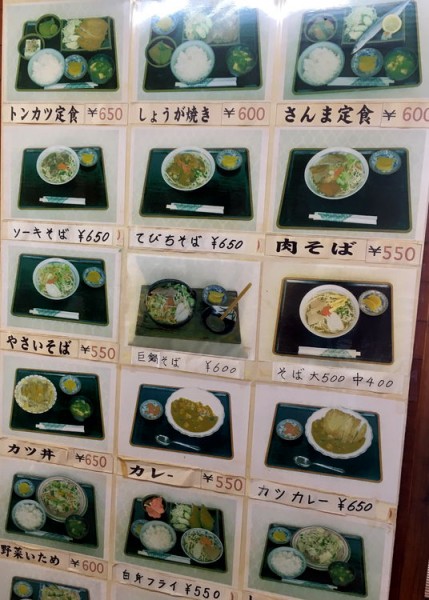 トンカツ定食 ¥650
しょうが焼き ¥600
さんま定食 ¥600
ソーキそば ¥650
てびちそば ¥650
肉そば ¥550
やさいそば ¥550
¥600
そば 大500 中400
カツ丼 ¥650
カレー ¥550
カツカレー ¥650
野菜いため ¥600
白身フライ ¥550